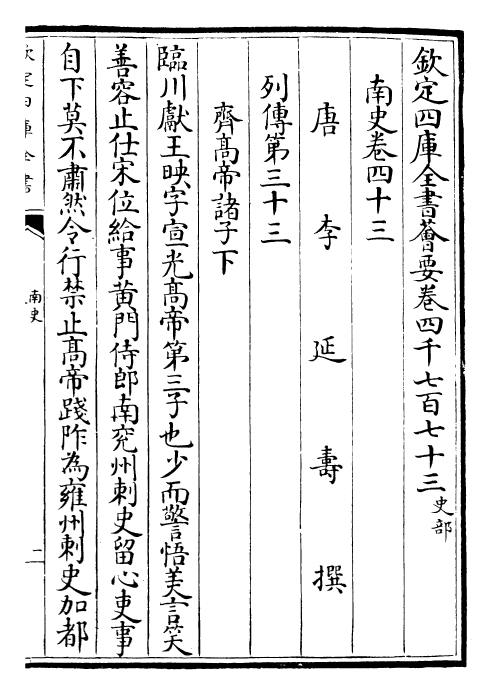 欽定四庫全書薈要卷四千七百七十三史部
南史卷四十三
唐李延壽撰
列傳第三十三
齊髙帝諸子下
臨川獻王映字宣光髙帝第三子也少而警悟美言笑
善容止仕宋位給事黄門侍郎南兖州刺史留心吏事
自下莫不肅然令行禁止髙帝踐阼為雍州刺史加都
欽定四庫全書
南史